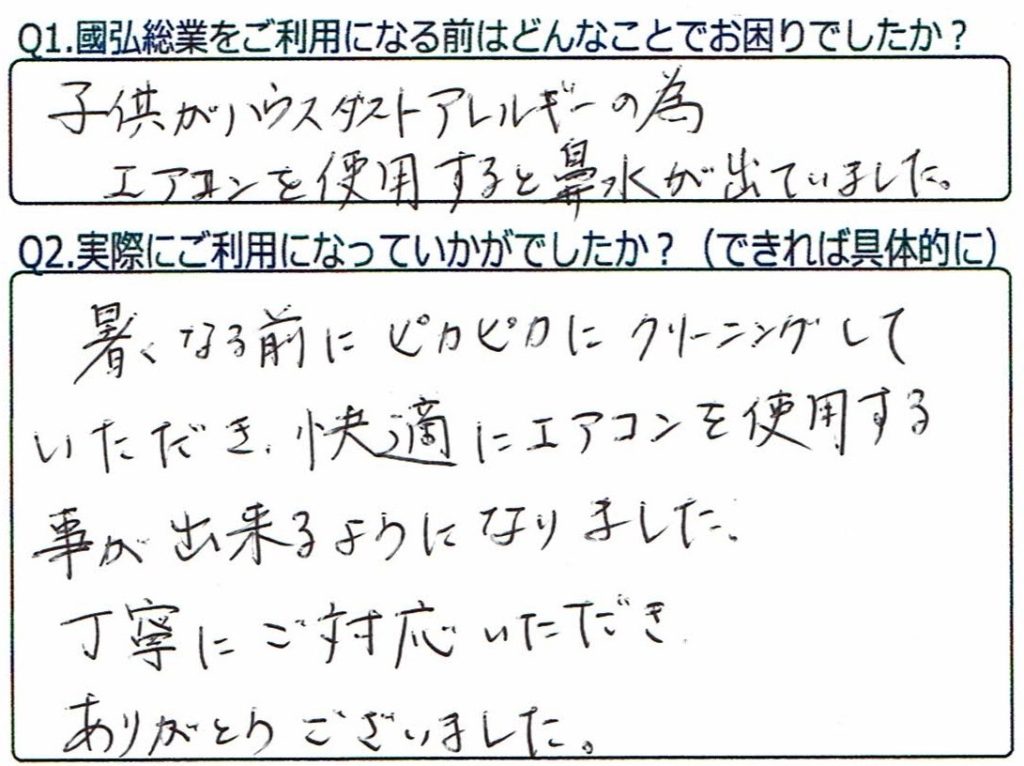 Q1.國弘総業をご利用になる前はどんなことでお困りでしたか？
子供がハウスダストアレルギーの為
エアコンを使用すると鼻水が出ていました。
Q2.実際にご利用になっていかがでしたか？（できれば具体的に）
暑くなる前にピカピカにクリーニングして
いただき、快適にエアコンを使用する
事が出来るようになりました、
丁寧にご対応いただき
ありがとうございました。